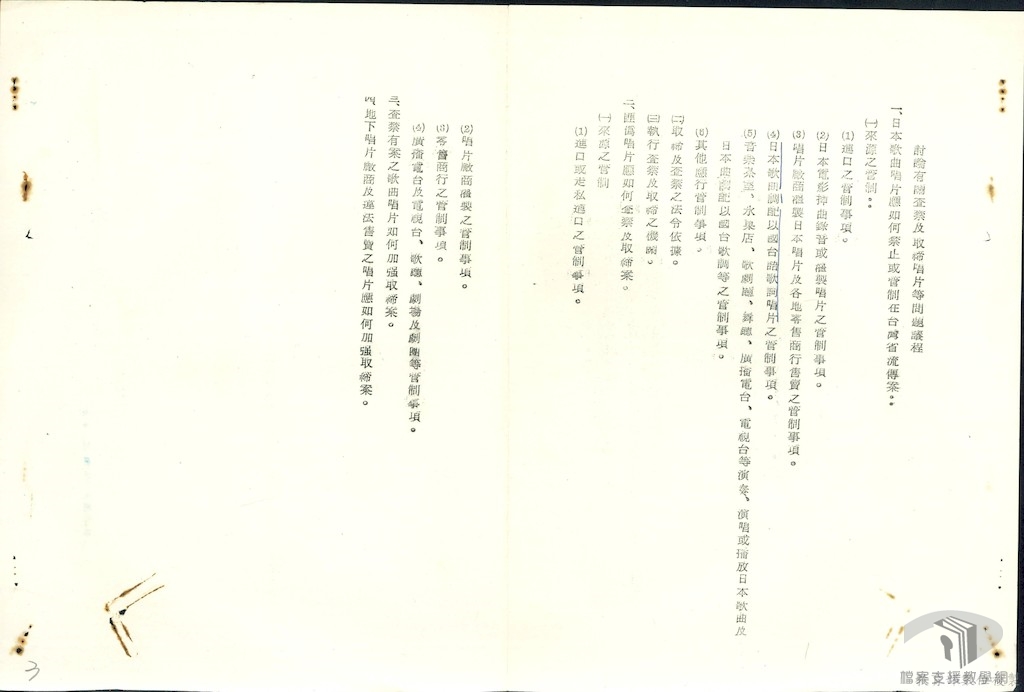 討論有關查禁及取締唱片等問題議程
一、日本歌曲唱片應如何禁止或管制在台灣省流傳案：
(一)來源之管制：
(1)進口之管制事項。
(2)日本電影插曲錄音或翻製唱片之管制事項。
(3)唱片廠商翻製日本唱片及各地零售商行售賣之管制事項。
(4)日本歌曲調配以國台語歌詞唱片之管制事項。
(5)音樂茶室、水果店、歌劇團、舞廳、廣播電台、電視台等演奏、演唱或播放日本歌曲及
日本曲調配以國台歌詞等之管制事項。
(6)其他應行管制事項。
(二)取締及查禁之法令依據。
(三)執行查禁及取締之機關。
二、匪偽唱片應如何查禁及取締案。
(一)來源之管制
(1)進口或走私進口之管制事項。
(2)唱片廠商翻製之管制事項。
(3)零售商行之管制事項。
(4)廣播電台及電視台、歌廳、劇場及劇團等管制事項。
三、查禁有案之歌曲唱片如何加强取締案。
四、地下唱片廠商及違法售賣之唱片應如何加强取締案。
3
檔案支援教學網